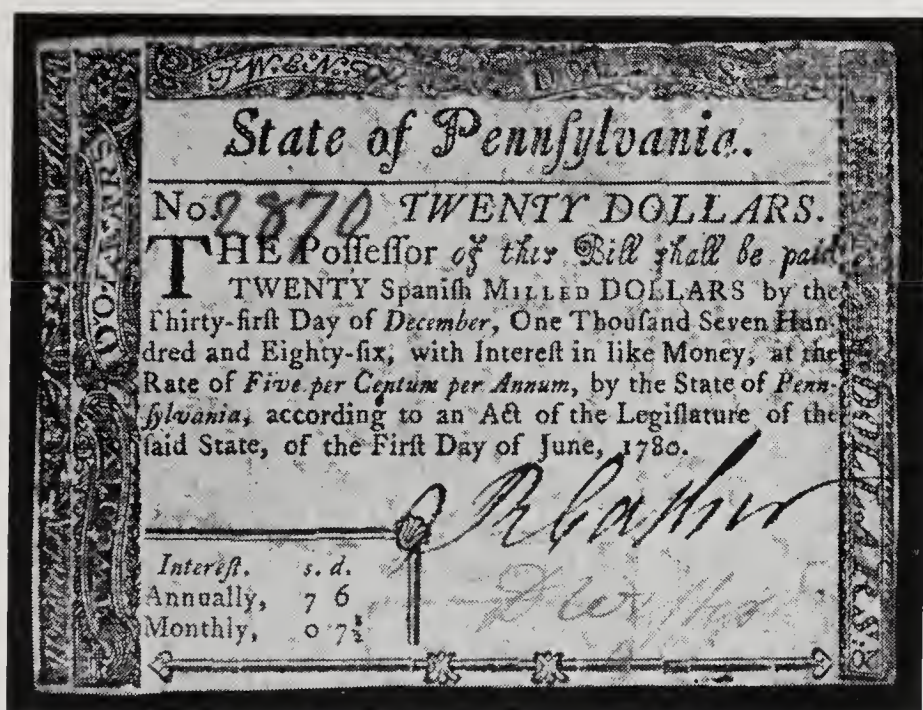 TWENTY DOL
DOLLARS
State of Pennſylvania.
No. 2870 TWENTY DOLLARS.
THE Poſſeſſor of this Bill ſhall be paid
TWENTY Spaniſh MILLED DOLLARS by the
Thirty-firſt Day of December, One Thouſand Seven Hun-
dred and Eighty-ſix, with Intereſt in like Money, at the
Rate of Five per Centum per Annum, by the State of Penn-
ſylvania, according to an Act of the Legiſlature of the
ſaid State, of the Firſt Day of June, 1780.
Intereſt. s. d.
Annually, 7 6
Monthly, 0 7½
DOLLARS